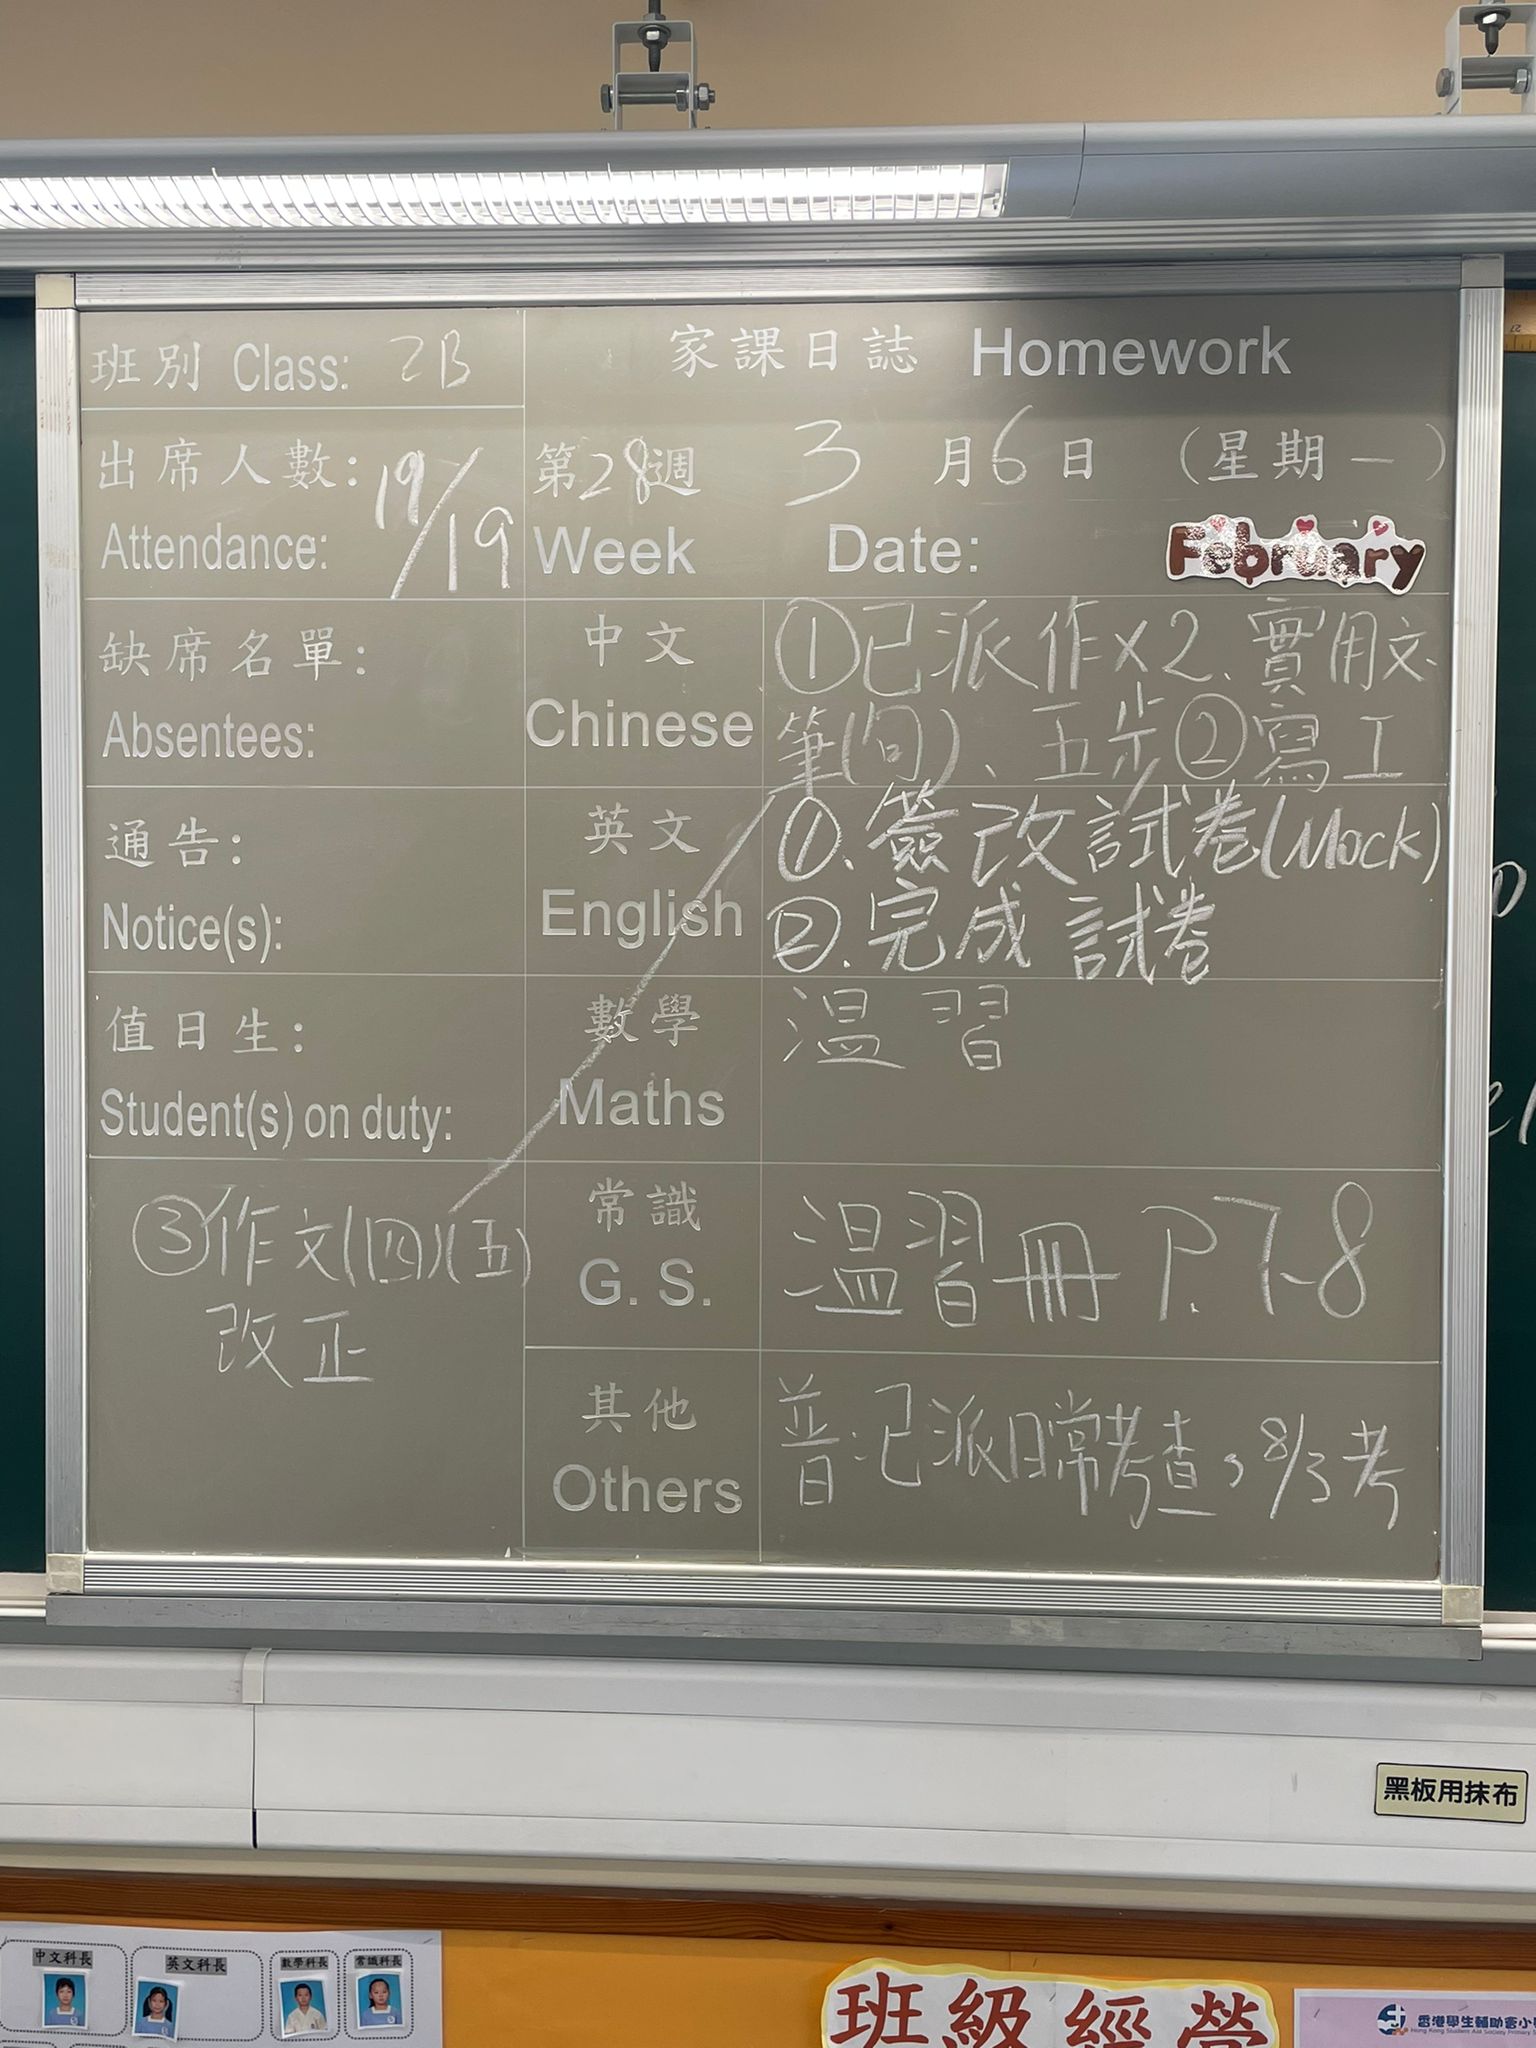 班別 Class: 2B
家課日誌 Homework
出席人數: 19/19
Attendance:
第28週
Week
3月6日 (星期一)
Date:
February
缺席名單:
Absentees:
中文
Chinese
①已派作×2、實用文、
筆(句)、五步②寫工
通告:
Notice(s):
英文
English
①.簽改試卷(Mock)
②.完成試卷
值日生:
Student(s) on duty:
數學
Maths
溫習
③作文(四)(五)
改正
常識
G. S.
溫習冊 P.7-8
其他
Others
普:已派日常考查,8/3考
黑板用抹布
中文科長
英文科長
數學科長
常識科長
班級經營
香港學生輔助會小
Hong Kong Student Aid Society Primary S